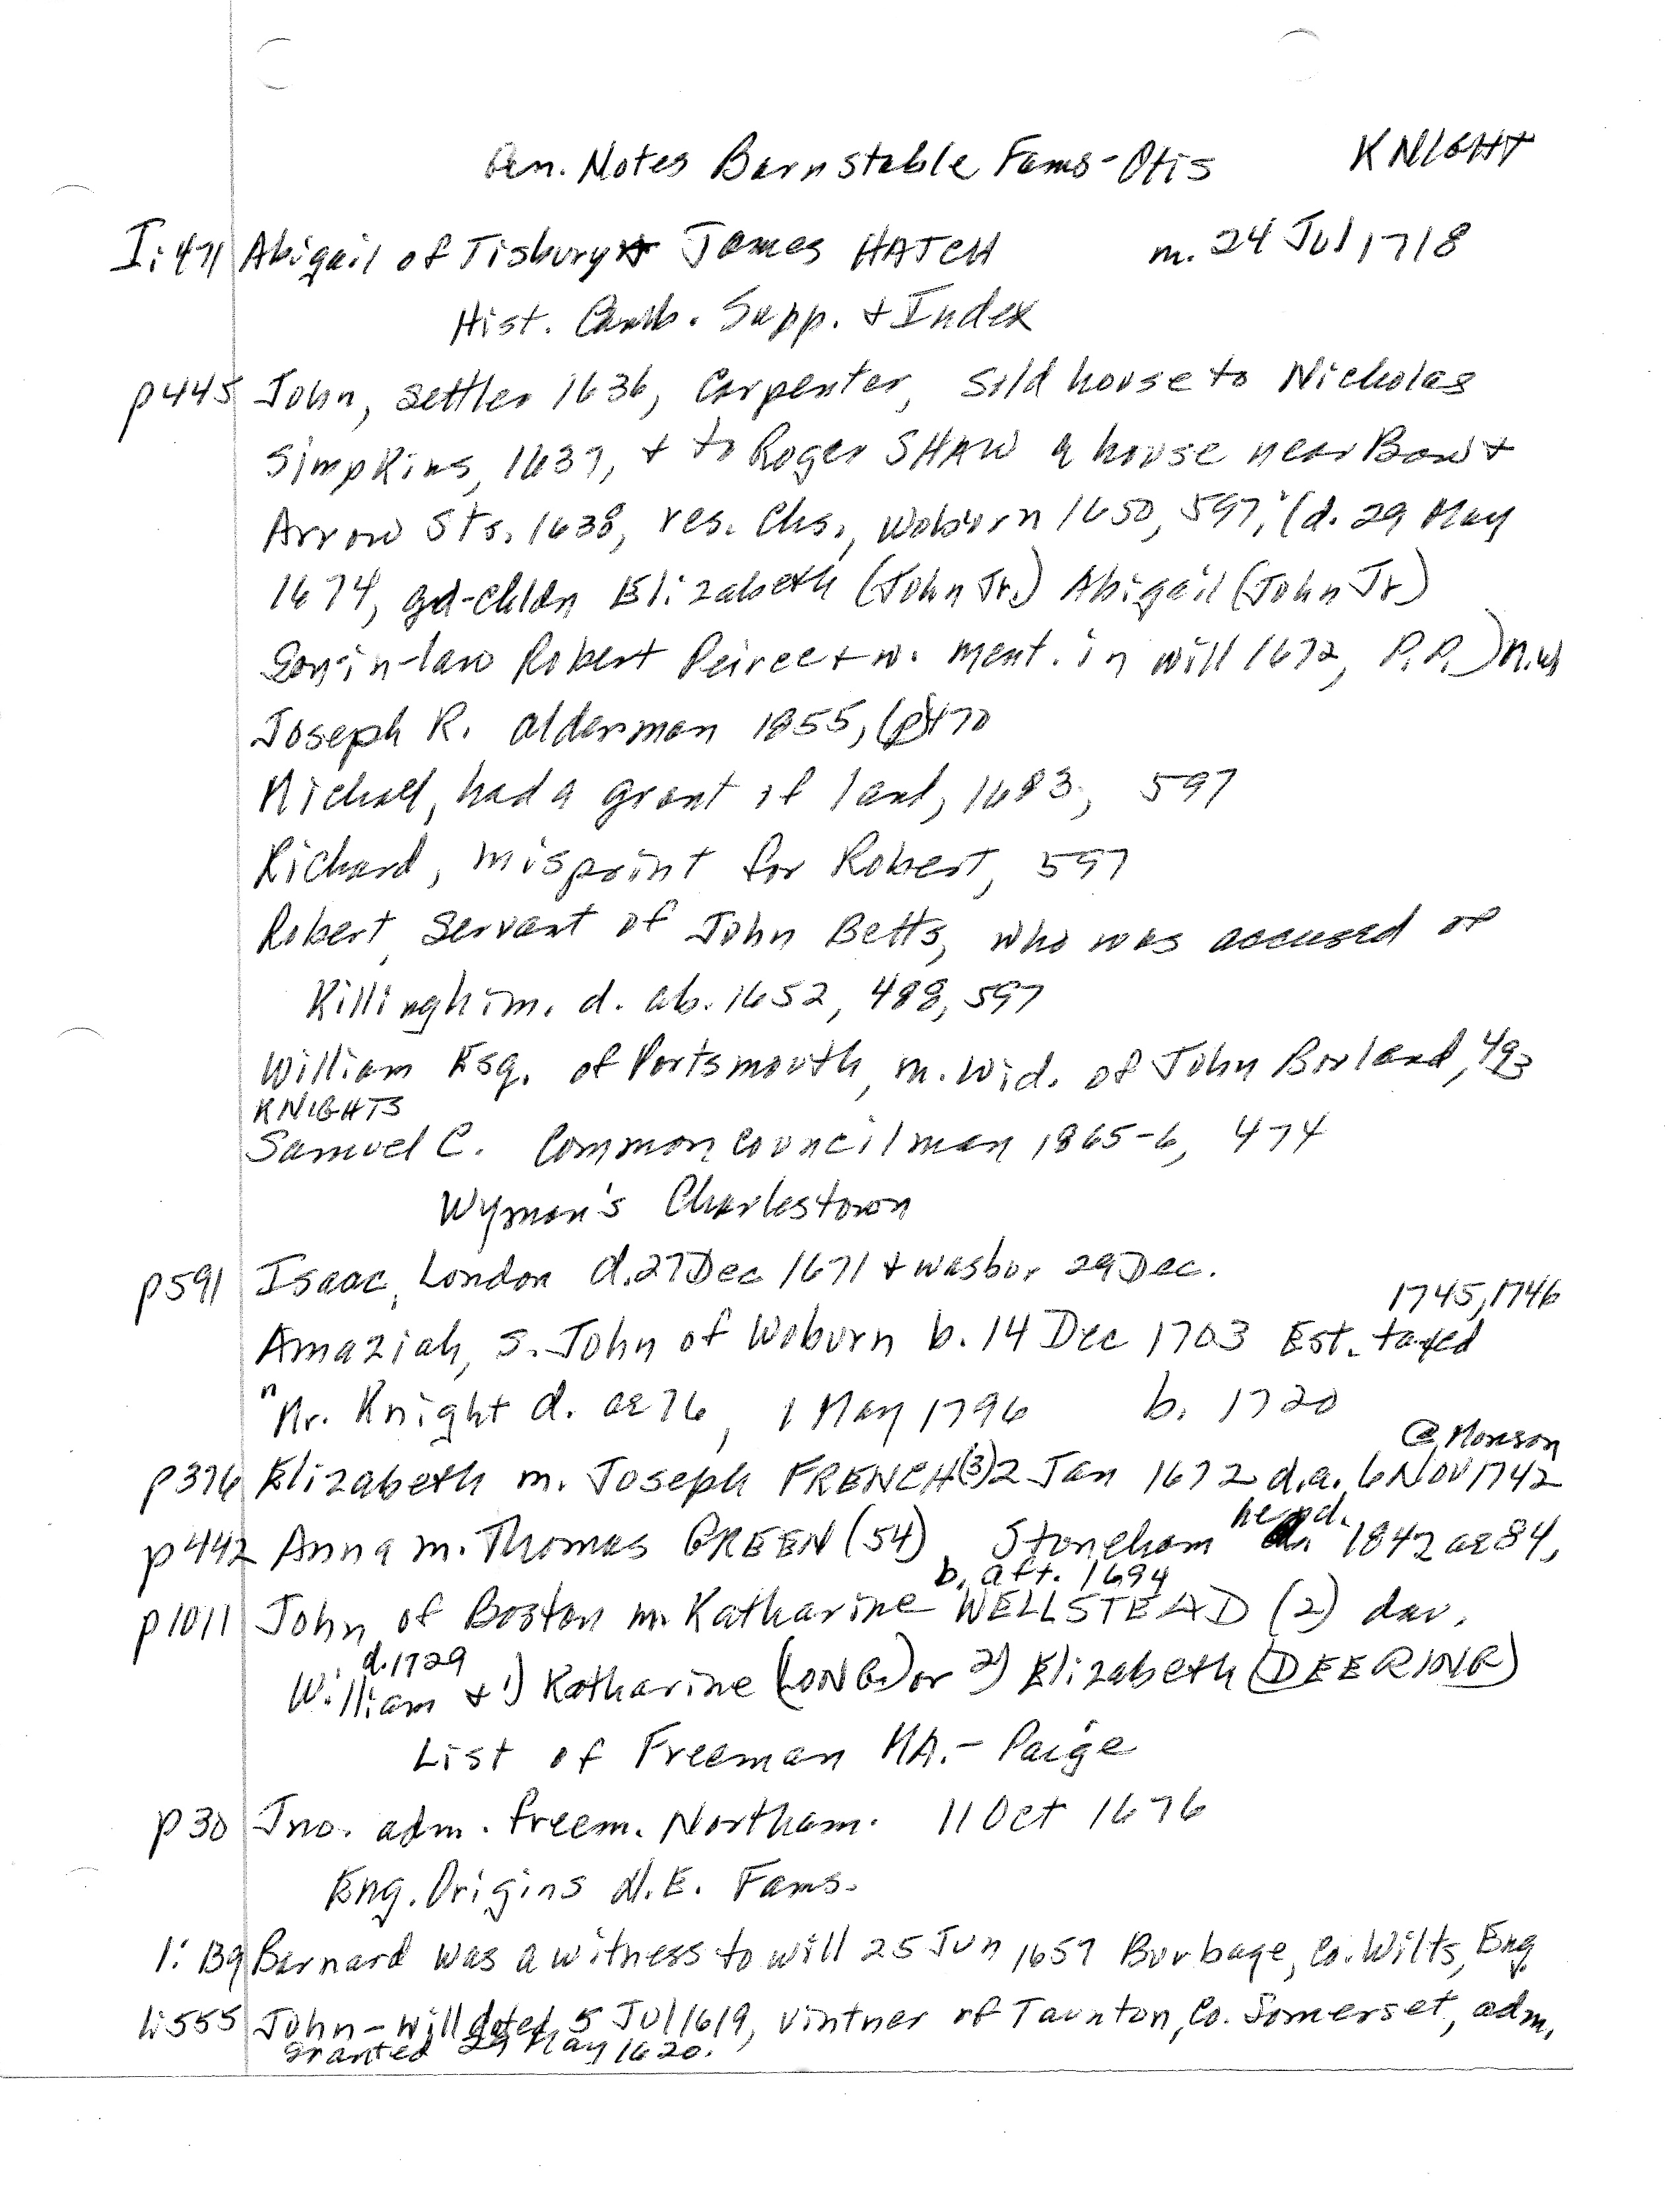 Gen. Notes Barnstable Fams-Otis KNIGHT
I:471 Abigail of Tisbury James HATCH m. 24 Jul 1718
Hist. Camb. Supp. + Index
p445 John, settler 1636, Carpenter, sold house to Nicholas
Simpkins, 1637, + to Roger SHAW a house near Bow +
Arrow Sts. 1638, res. Chs., Woburn 1650, 597, (d. 29 May
1674, gd-chldn Elizabeth (John Jr.) Abigail (John Jr)
Son-in-law Robert Peirce + w. ment. in will 1672, P.R.)
Joseph R. alderman 1855, (p)470
Michall, had a grant of land, 1683, 597
Richard, misprint for Robert, 597
Robert, servant of John Betts, who was accused of
Killing him. d. ab. 1652, 488, 597
William Esq. of Portsmouth, m. wid. of John Borland, 493
KNIGHTS
Samuel C. Common Councilman 1865-6, 474
Wyman's Charlestown
p591 Isaac, London d. 27 Dec 1671 + was bur 29 Dec.
1745, 1746
Amaziah, s. John of Woburn b. 14 Dec 1703 Est. taxed
"Mr. Knight d. ae 76, 1 May 1796 b. 1720
@ Monson
p376 Elizabeth m. Joseph FRENCH (3) 2 Jan 1672 d.a. 6 Nov 1742
he pd.
p442 Anna m. Thomas GREEN (54) Stoneham 1842 ae 84,
b. aft. 1694
p1011 John of Boston m. Katharine WELLSTEAD (2) dau.
d. 1729
William + 1) Katharine (LONG) or 2) Elizabeth (DEERING)
List of Freeman MA. - Paige
p30 Jno. adm. freem. Northam. 11 Oct 1676
Eng. Origins N.E. Fams.
1:139 Barnard was a witness to will 25 Jun 1657 Burbage, Co. Wilts, Eng
1:555 John - will dated 5 Jul 1619, vintner of Taunton, Co. Somerset, adm.
granted 29 May 1620.